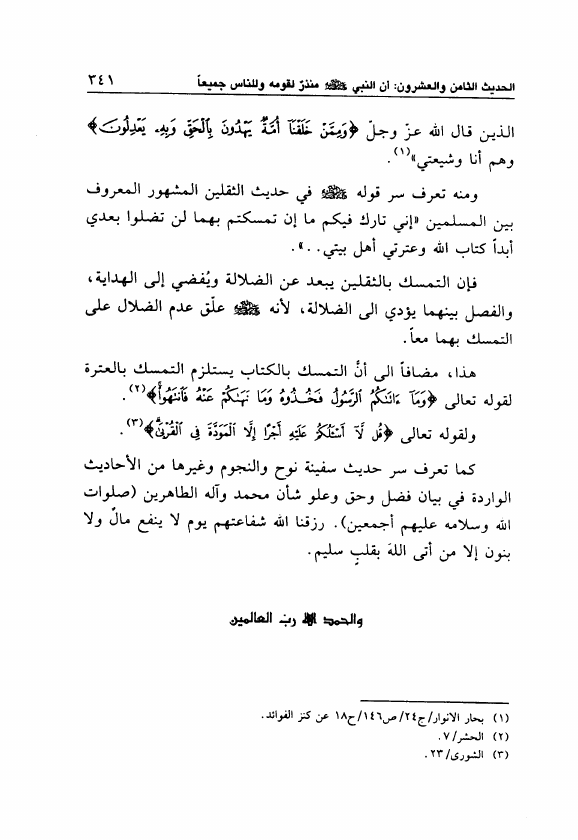 الحديث الثامن والعشرون: أن النبي ﷺ منذرٌ لقومه وللناس جميعاً ٣٤١
الذين قال الله عزّ وجلّ ﴿وَمِمَّنْ خَلَقْنَا أُمَّةٌ يَهْدُونَ بِالْحَقِّ وَبِهِ يَعْدِلُونَ﴾
وهم أنا وشيعتي»(١).
ومنه تعرف سر قوله ﷺ في حديث الثقلين المشهور المعروف
بين المسلمين «إني تارك فيكم ما إن تمسكتم بهما لن تضلوا بعدي
أبداً كتاب الله وعترتي أهل بيتي..».
فإن التمسك بالثقلين يبعد عن الضلالة ويُفضي إلى الهداية،
والفصل بينهما يؤدي الى الضلالة، لأنه ﷺ علّق عدم الضلال على
التمسك بهما معاً.
هذا، مضافاً الى أنَّ التمسك بالكتاب يستلزم التمسك بالعترة
لقوله تعالى ﴿وَمَآ ءَاتَىٰكُمُ ٱلرَّسُولُ فَخُذُوهُ وَمَا نَهَىٰكُمْ عَنْهُ فَٱنتَهُوا۟﴾(٢).
ولقوله تعالى ﴿قُل لَّآ أَسْـَٔلُكُمْ عَلَيْهِ أَجْرًا إِلَّا ٱلْمَوَدَّةَ فِى ٱلْقُرْبَىٰ﴾(٣).
كما تعرف سر حديث سفينة نوح والنجوم وغيرها من الأحاديث
الواردة في بيان فضل وحق وعلو شأن محمد وآله الطاهرين (صلوات
الله وسلامه عليهم أجمعين). رزقنا الله شفاعتهم يوم لا ينفع مالٌ ولا
بنون إلا من أتى اللهَ بقلبٍ سليم.
والحمد لله رب العالمين
(١) بحار الانوار/ج٢٤/ص١٤٦/ح١٨ عن كنز الفوائد.
(٢) الحشر/٧.
(٣) الشورى/٢٣.